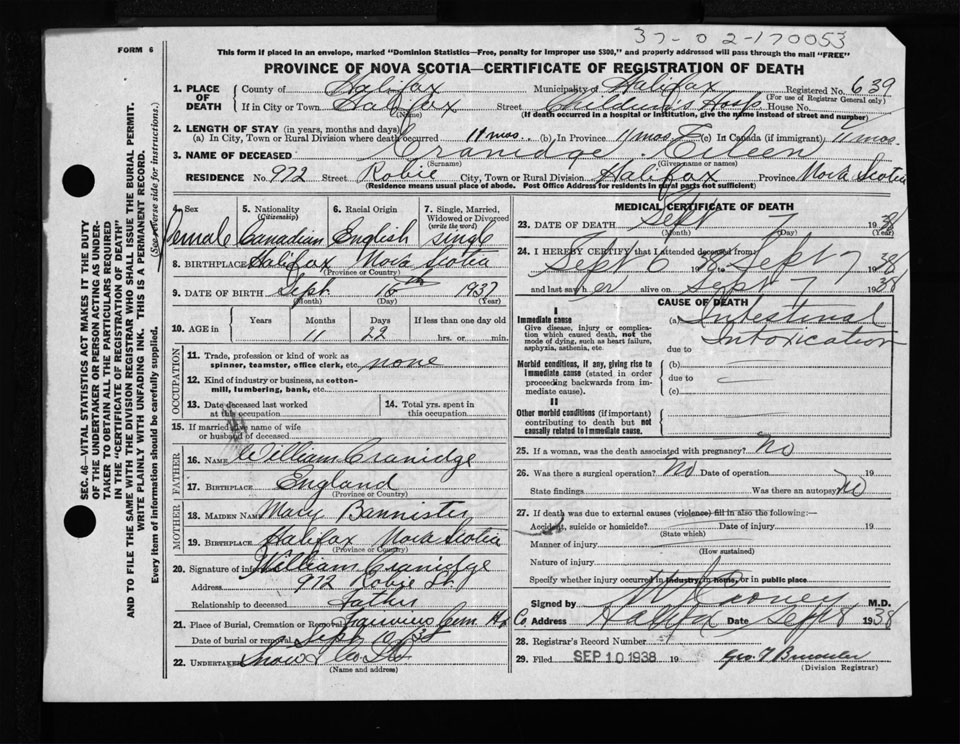 37-02-170053
FORM 6
This form if placed in an envelope, marked "Dominion Statistics—Free, penalty for improper use $300," and properly addressed will pass through the mail "FREE"
PROVINCE OF NOVA SCOTIA—CERTIFICATE OF REGISTRATION OF DEATH
SEC. 46—VITAL STATISTICS ACT MAKES IT THE DUTY
OF THE UNDERTAKER OR PERSON ACTING AS UNDER-
TAKER TO OBTAIN ALL THE PARTICULARS REQUIRED
IN THE "CERTIFICATE OF REGISTRATION OF DEATH"
AND TO FILE THE SAME WITH THE DIVISION REGISTRAR WHO SHALL ISSUE THE BURIAL PERMIT.
WRITE PLAINLY WITH UNFADING INK. THIS IS A PERMANENT RECORD.
Every item of information should be carefully supplied. See reverse side for instructions.
1. PLACE OF DEATH County of Halifax Municipality of Halifax Registered No. 639
(For use of Registrar General only)
If in City or Town Halifax Street Children's Hosp. House No.
(Name) (If death occurred in a hospital or institution, give the name instead of street and number)
2. LENGTH OF STAY (in years, months and days)
(a) In City, Town or Rural Division where death occurred 11 mos. (b) In Province 11 mos (c) In Canada (if immigrant) 11 mos.
3. NAME OF DECEASED Cranidge Eileen
(Surname) (Given name or names)
RESIDENCE No. 972 Street Robie City, Town or Rural Division Halifax Province Nova Scotia
(Residence means usual place of abode. Post Office Address for residents in rural parts not sufficient)
4. Sex 5. Nationality (Citizenship) 6. Racial Origin 7. Single, Married, Widowed or Divorced (write the word)
Female Canadian English Single
8. BIRTHPLACE Halifax Nova Scotia
(Province or Country)
9. DATE OF BIRTH Sept. 16th 1937
(Month) (Day) (Year)
10. AGE in Years Months Days If less than one day old
11 22 hrs. or min.
OCCUPATION
11. Trade, profession or kind of work as spinner, teamster, office clerk, etc. none
12. Kind of industry or business, as cotton-mill, lumbering, bank, etc.
13. Date deceased last worked at this occupation 14. Total yrs. spent in this occupation
15. If married give name of wife or husband of deceased
FATHER
16. NAME William Cranidge
17. BIRTHPLACE England
(Province or Country)
MOTHER
18. MAIDEN NAME Mary Bannister
19. BIRTHPLACE Halifax Nova Scotia
(Province or Country)
20. Signature of informant William Cranidge
Address 972 Robie St.
Relationship to deceased Father
21. Place of Burial, Cremation or Removal Fairview Cem Hfx Co.
Date of burial or removal Sept 10/38
22. UNDERTAKER Snow & Co Ltd
(Name and address)
MEDICAL CERTIFICATE OF DEATH
23. DATE OF DEATH Sept 7 1938
(Month) (Day) (Year)
24. I HEREBY CERTIFY that I attended deceased from
Sept 6 1938 to Sept 7 1938
and last saw her alive on Sept 7 1938
CAUSE OF DEATH
I
Immediate cause
Give disease, injury or complication which caused death, not the mode of dying, such as heart failure, asphyxia, asthenia, etc.
(a) Intestinal Intoxication
due to
Morbid conditions, if any, giving rise to immediate cause (stated in order proceeding backwards from immediate cause).
(b)
due to
(c)
II
Other morbid conditions (if important) contributing to death but not causally related to immediate cause.
25. If a woman, was the death associated with pregnancy? No
26. Was there a surgical operation? No Date of operation 19
State findings Was there an autopsy? No
27. If death was due to external causes (violence) fill in also the following:—
Accident, suicide or homicide? Date of injury 19
(State which)
Manner of injury
(How sustained)
Nature of injury
Specify whether injury occurred in industry, in home, or in public place
Signed by Cooney M.D.
Address Halifax Date Sept 8 1938
28. Registrar's Record Number
29. Filed SEP 10 1938 19
(Division Registrar)